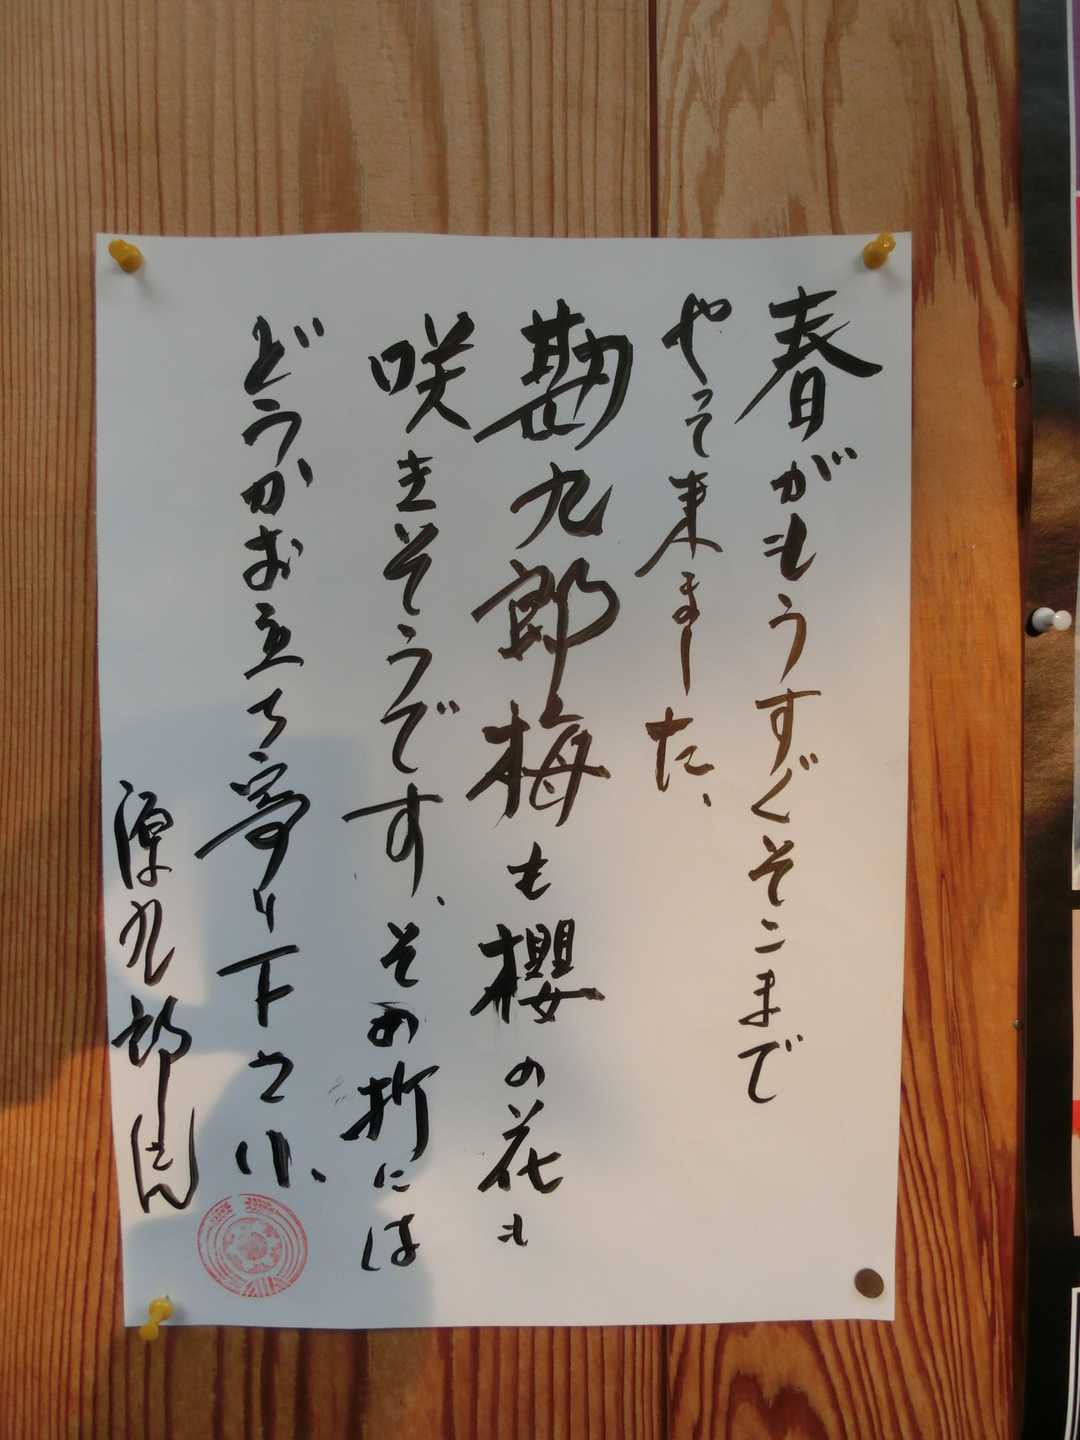 春がもうすぐそこまで
やって来ました、
勘九郎梅も櫻の花も
咲きそうです、その折には
どうかお立ち寄り下さい、
源九郎